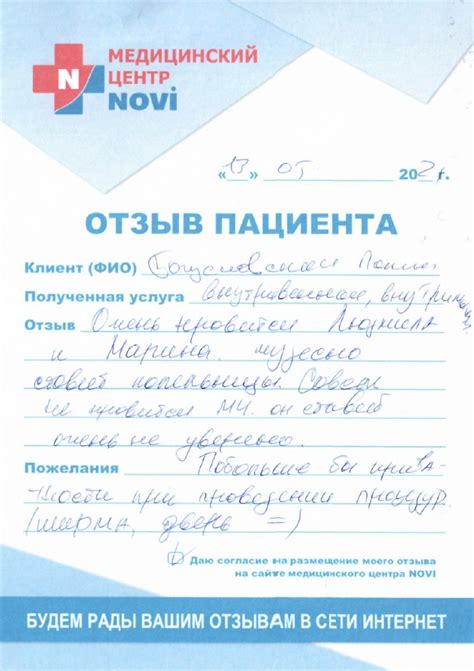 МЕДИЦИНСКИЙ
ЦЕНТР
N NOVi
«13» 05 202 г.
ОТЗЫВ ПАЦИЕНТА
Клиент (ФИО)
Полученная услуга внутривенная,
Отзыв Очень нравится Людмила
и Марина. чудесно
ставят капельницы. Совсем
не нравится МЧ. он ставит
очень не уверенно.
Пожелания Побольше бы прива-
тности при проведении процедур.
(ширма, дверь =)
Даю согласие на размещение моего отзыва
на сайте медицинского центра NOVI
БУДЕМ РАДЫ ВАШИМ ОТЗЫВАМ В СЕТИ ИНТЕРНЕТ